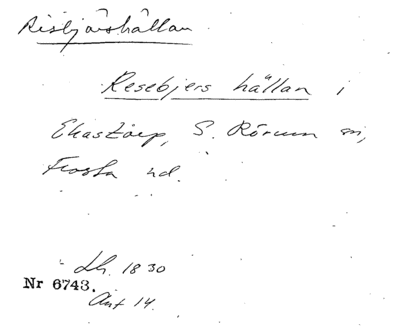 Risbjärshällan
Resebjers hällan i
Ekastorp, S. Rörum sn,
Frosta hd.
Lh. 1830
Nr 6743.
Akt 14.